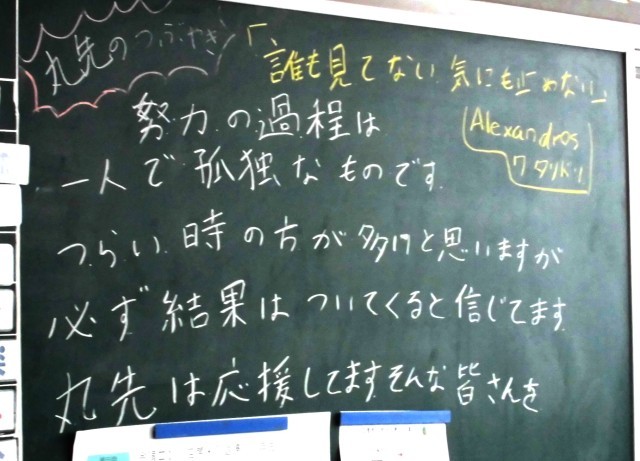 丸先のつぶやき
「誰も見てない 気にも止めない」
Alexandros
ワタリドリ
努力の過程は
一人で孤独なものです
つらい時の方が多いと思いますが
必ず結果はついてくると信じてます
丸先は応援してますそんな皆さんを